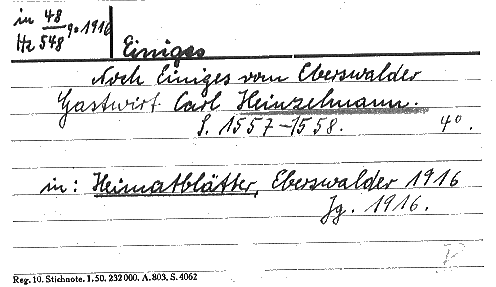 in 48
Hz 548 go 1916
Einiges
Noch Einiges vom Eberswalder
Gastwirt Carl Heinzelmann.
S. 1557-1558. 4°.
in: Heimatblätter, Eberswalder 1916
Jg. 1916.
Reg. 10. Stichnote. 1. 50. 232000. A. 803. S. 4062